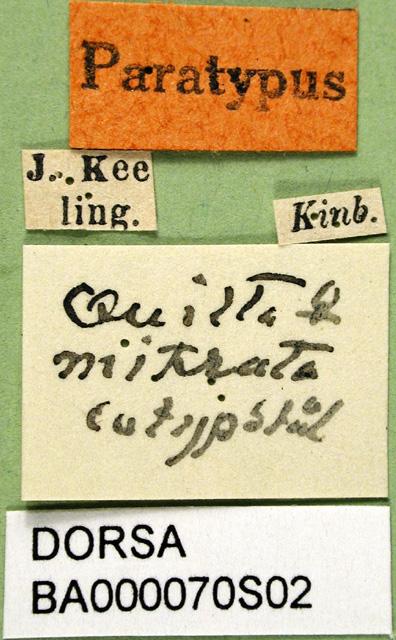 Paratypus
J. Kee
ling.
Kinb.
Quilta
mitrata
cotyp Stål
DORSA
BA000070S02